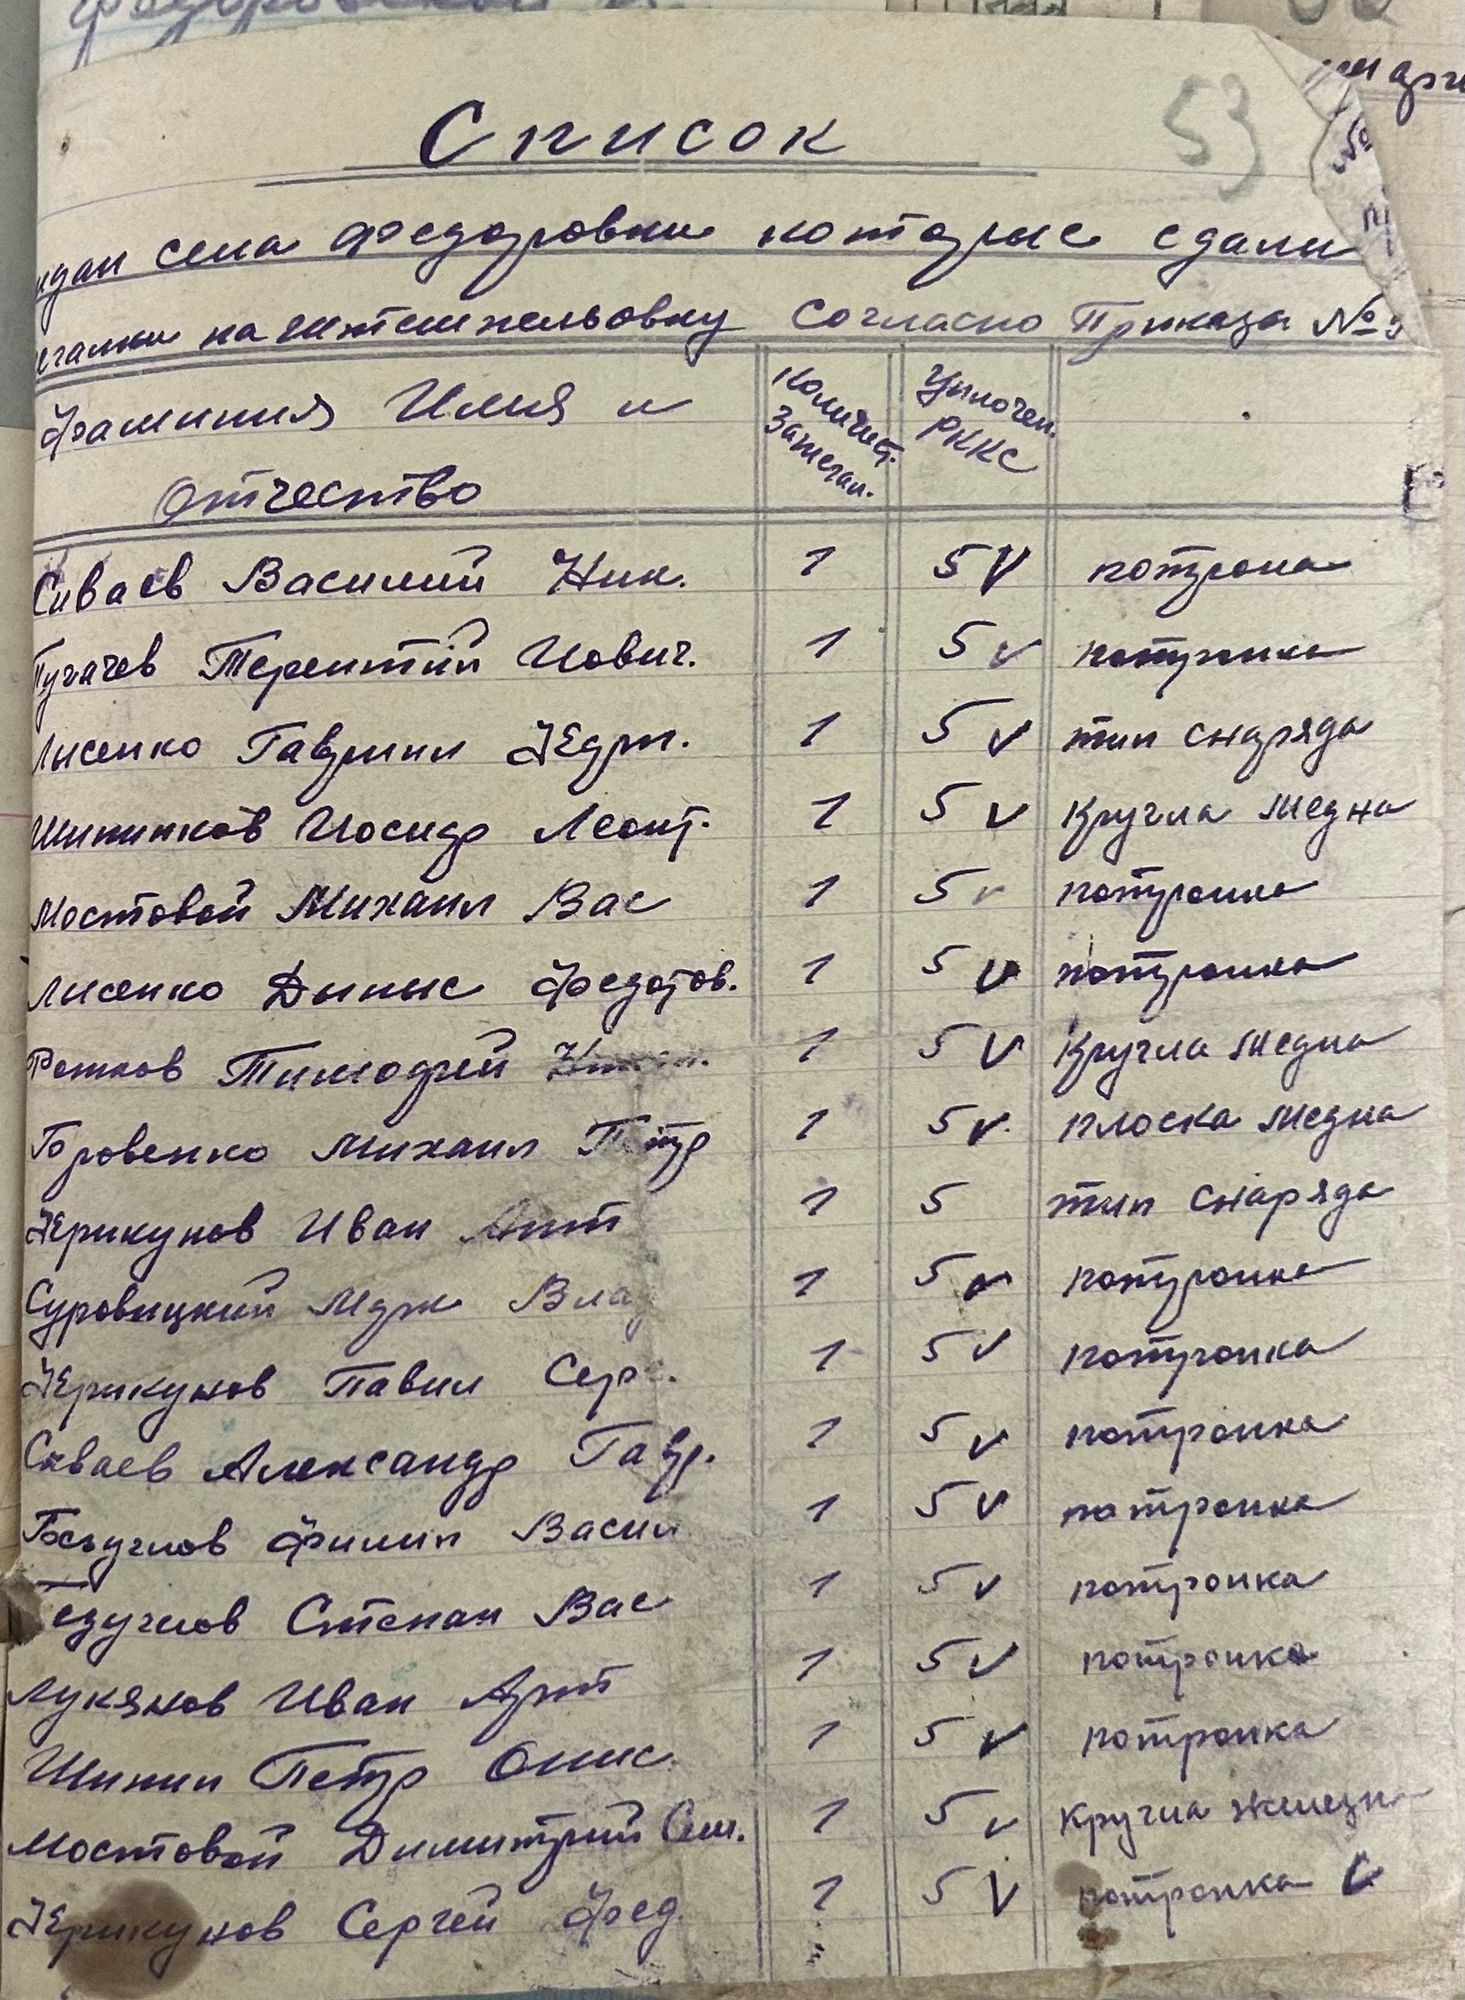 53
Список
села Федоровки которые сдали
на штемпельовку Согласно Приказа №
Фамилия Имия и Отчество
Количест. Зажегал.
Уплочен. РККС
Сиваев Василий Ник. 1 5 V потрона
Пугачев Терентий Иович. 1 5 V потронка
Лисенко Гаврил 1 5 V тип снаряда
Шипитков Иосиф Леонт. 1 5 V Кругла медна
Мостовой Михаил Вас 1 5 V потронка
Лисенко Дыныс Федотов. 1 5 V потронка
Тимофей 1 5 V Кругла медна
Горовенко Михаил Петр 1 5 V плоска медна
Иван 1 5 тип снаряда
Суровицкий Марк Влад 1 5 V потронка
Павил Серг. 1 5 V потронка
Сиваев Александр Гавр. 1 5 V потронка
Филип Васил 1 5 V потронка
Степан Вас 1 5 V потронка
Лукянов Иван Арт 1 5 V потронка
Шипил Петр Онис. 1 5 V потронка
Мостовой Димитрий Сем. 1 5 V Кругла
Сергей Фед. 1 5 V потронка V